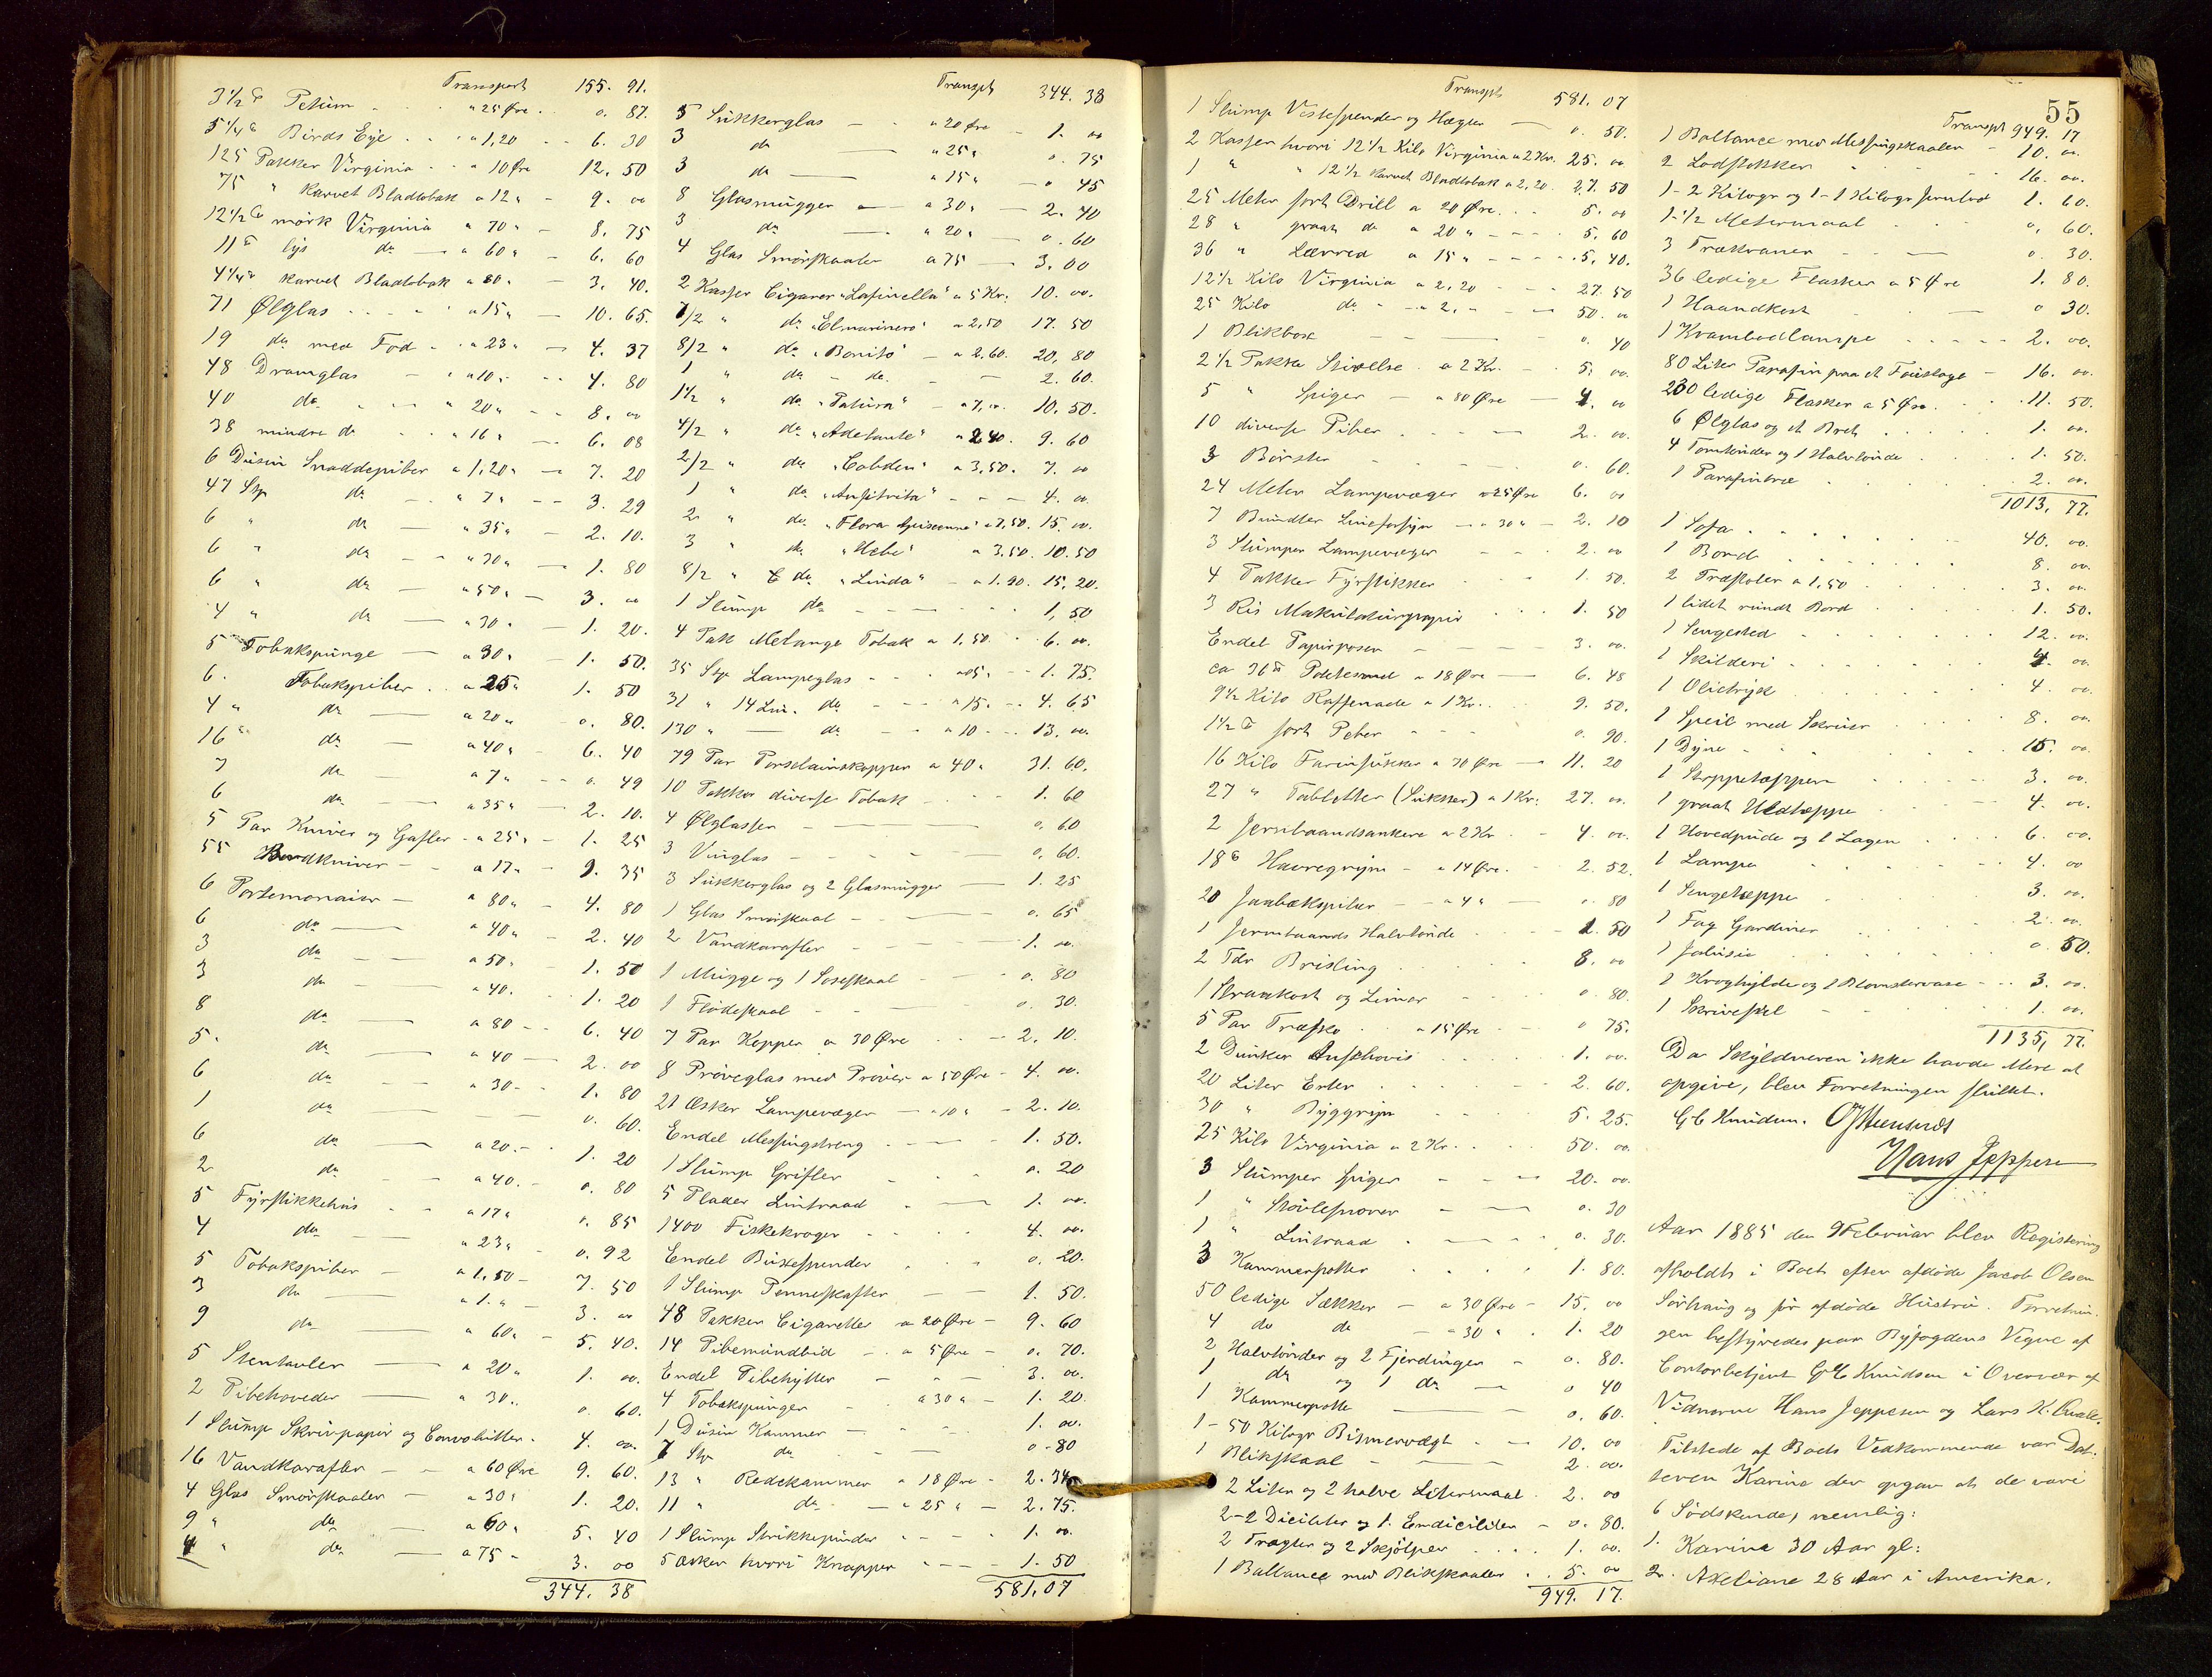 Transport 155. 91.
3 1/2 ℔ Petum - - " 25 Øre. 0. 87.
5 1/4 ℔ Birds Eye . . . a 1,20 - - 6. 30
125 Pakker Virginia . . a 10 Øre 12. 50
75 " karvet Bladtobak a 12 " - 9. 00
12 1/2 ℔ mörk Virginia a 70 " - 8. 75
11 ℔ lys do - a 60 " - 6. 60
4 1/4 ℔ karvet Bladtobak a 80 " - 3. 40.
71 Ølglas . . . . " a 15 " - 10. 65.
19 do med Fod - . a 23 " - 4. 37
48 Dramglas - . a 10 " - - 4. 80
40 do - . . - " 20 " - - 8. 00
38 mindre do . . . " 16 " - 6. 08
6 Dusin Snaddepiber a 1,20 " - 7. 20
47 Stp do - - " 7 " - - 3. 29
6 " do - " 35 " - 2. 10.
6 " do - - " 30 " - 1. 80
6 " do - " 50 " - 3. 00
4 " do - " 30 " - 1. 20.
5 Tobakspunge - a 30 " - 1. 50.
6. Tobakspiber . . a 25 " 1. 50
4 " do - a 20 " - 0. 80.
16 " do - a 40 " - 6. 40
7 do - a 7 " - - 0. 49
6 do - a 35 " - 2. 10.
5 Par Knive og Gafler - a 25 " - 1. 25
55 Bordkniver - - a 17 " - 9. 35
6 Portemonaier - a 80 " - 4. 80
6 do - a 40 " - 2. 40
3 do - - a 50 " - 1. 50
3 do - a 40. - 1. 20
8 do - a 80 - - 6. 40
5. do - a 40 - - 2. 00
6 do - - a 30 - - 1. 80
1 do - - - - 0. 60.
6 do - a 20. - - 1. 20
2 do - - a 40. - - 0. 80
5 Fyrstikkehus - - a 17 " 0. 85
4 do - " 23 " - 0. 92
5 Tobakspiber - a 1,50 - 7. 50
3 do - a 1. " - 3. 00
9 do - a 60 " - 5. 40.
5 Stentavler - a 20 " 1. 00.
2 Pibehoveder - a 30 " . 0. 60.
1 Slump Skrivpapir og Convolutter - 4. 00.
16 Vandkarafler - - a 60 Øre 9. 60.
4 Glas Smörskaaler - a 30 " 1. 20.
9 " do - a 60 " 5. 40
4 " do - a 75 - 3. 00
344. 38
Transpt 344. 38
5 Sukkerglas - - a 20 Øre - 1. 00
3 do " 25 " 0. 75
3 do - a 15 " - 0 45
8 Glasmugger - a 30 " - 2. 40
3 do - " 20 " - 0. 60
4 Glas Smörskaaler a 75 - 3. 00
2 Kasser Cigarer "Lafinella" a 5 Kr. 10. 00.
7/2 " do "Elmarinero" a 2,50 17. 50
8/2 " do "Bonito" - a 2,60. 20, 80
1 " do - do. - - 2. 60.
1 1/2 " do "Patura" - a 7,00. 10. 50.
4/2 " do "Adelante" a 2,40. 9. 60
2/2 " do "Cobden" a 3,50. 7. 00
1 " do "Anfitrita" - - - 4. 00.
2 " do "Flora " a 7,50. 15. 00.
3 " do "Hebe" a 3.50. 10. 50
8/2 " do "Linda" - a 1.90. 15, 20.
1 Slump do - - - - - 1, 50
4 Pak Melange Tobak a 1,50. - 6. 00.
35 Stp Lampeglas - - - a 05 " - - 1. 75.
31 " 14 Lin. do - - - a 15. - - 4. 65
130 " - do - - a 10 - - - 13. 00.
79 Par Porselainskopper a 40 " 31. 60.
10 Pakker diverse Tobak - - - 1. 60
4 Ølglasser - - 0. 60
3 Vinglas - - - - - 0. 60.
3 Sukkerglas og 2 Glasmugger - 1. 25
1 Glas Smörskaal - - 0. 65
2 Vandkarafler - - - - 1. 00.
1 Mugge og 1 Soseskaal - - 0. 80
1 Flödeskaal - - - - 0. 30.
7 Par Kopper a 30 Øre - - - 2. 10.
8 Pröveglas med Pröver a 50 Øre - 4. 00.
21 Æsker Lampevæger - a 10 " - 2. 10.
Endel Messingstreng - - - - 1. 50.
1 Slump Grifler - - - 0. 20
5 Plader Lintraad - - 1. 00.
1400 Fiskekroger - - - - 4. 00.
Endel Buxespender - - - 0. 20.
1 Slump Penneskafter - - 1. 50.
48 Pakker Cigaretter a 20 Øre - 9. 60
14 Pibemundbid - . a 5 Øre - 0. 70.
Endel Pibehytter - - - 3. 00.
4 Tobakspunger - a 30 " - 1. 20.
1 Dusin Kammer - - - 1. 00.
7 Stp do - - - 0 - 80
13 " Redekammer a 18 Øre - 2. 34
11 " do - " 25 " - 2. 75.
1 Slump Strikkepinder - - - - 1. 00.
5 Æsker hvori Knapper - - - - 1. 50
581,07
Transpt 581. 07
1 Slump Vestespender og Hægter - 0. 50.
2 Kasser hvori 12 1/2 Kilo Virginia a 2 Kr. 25. 00
1 " " 12 1/2 karvet Bladtobak a 2,20. 27. 50
25 Meter sort Drill a 20 Øre. . . 5. 00
28 " graat do a 20 " - - - - 5. 60
36 " Lærred a 15 " - - - - 5, 40.
12 1/2 Kilo Virginia a 2,20 - - - 27. 50
25 Kilo do - - a 2, - - - 50. 00
1 Blikbox - - 0. 40
2 1/2 Pakke Stivelse . a 2 Kr. - . 5. 00.
5 " Spiger - a 80 Øre - 4. 00
10 diverse Piber . . - - 2. 00.
3 Börster - - - 0. 60.
24 Meter Lampevæger a 25 Øre 6. 00
7 Bundter Lineforsyn - a 30 " - 2. 10
3 Slumper Lampevæger - - - 2. 00
4 Pakker Fyrstikker - - - 1. 50.
3 Ris Makulaturpapir . . . 1. 50
Endel Papirposer - - - - 3. 00.
ca 36 ℔ a 18 Øre - 6. 48
9 1/2 Kilo Raffenade a 1 Kr. . 9. 50.
1 1/2 ℔ sort Peber - - - 0. 90.
16 Kilo Farinsukker a 70 Øre - 11. 20
27 " Tabletter (Sukker) a 1 Kr. 27. 00.
2 Jernbaandsankere a 2 Kr - - 4. 00.
18 ℔ Havregryn - a 14 Øre. - 2. 52.
20 Jaabækspiber - - a 4 " - 0. 80
1 Jernbaands Halvtönde . - - - 1. 50
2 Tdr Brisling . . . . 8. 00
1 Straakost og Limar - - - 0. 80.
5 Par Træsko . . a 15 Øre - - 0 75.
2 Dunker Anschovis . . . . 1. 00.
20 Liter Erter . . . . - - 2. 60.
30 " Byggryn - - - - 5. 25.
25 Kilo Virginia a 2 Kr. . . 50. 00.
3 Slumper Spiger - - - - 20. 00.
1 " Stövlesnorer - - 0. 30
1 " Lintraad . - - - - 0. 30.
3 Kammerpotter . . . . 1. 80.
50 ledige Sække - a 30 Øre - 15. 00
4 do do - a 30 " . 1. 20
2 Halvtönder og 2 Fjerdinger - 0. 80.
1 do og 1 do - 0 40
1 Kammerpotte - 0. 60.
1 - 50 Kilogr Bismervægt - - - 10. 00
1 Blikskaal - - 2. 00.
2 Liter og 2 halve Litersmaal . 2. 00
2-2 Deciliter og 1. Endeciliter - 0. 80.
2 Tragter og 2 Skjölper . . . . 1. 00.
1 Ballance med Blikskaaler . . 5. 00
949. 17.
55
Transpt 949. 17
1 Ballance med Messingskaaler - 10. 00.
2 Lodstokker - - - - - 16. 00.
1-2 Kilogr og 1-1 Kilogr Jernlod 1. 60.
1-1/2 Metermaal . - - 0, 60.
3 Trækraner - - - 0. 30.
36 ledige Flasker a 5 Øre 1. 80.
1 Haandkost - - - 0 30.
1 Krambodlampe - - - - - 2. 00.
80 Liter Parafin paa et Foustage - 16. 00.
230 ledige Flasker a 5 Øre. . . . 11. 50.
6 Ølglas og et Bret . . . . . 1. 00.
4 Tomtönder og 1 Halvtönde . . . 1. 50.
1 2. 00.
1013, 77.
1 Sofa . . . . . . 40. 00.
1 Bord . . . . . . 8. 00.
2 Træstoler a 1,50 . . . . 3. 00.
1 lidet rundt Bord . . . 1. 50.
1 Sengested . . . . . . 12. 00.
1 Skilderi . . . . . 4. 00
1 Olietryk . . . . . . 4. 00.
1 Speil med Skruer . . . . 8. 00.
1 Dyne . . . . . . 15. 00.
1 Stoppetæppe . . . . . 3. 00.
1 graat Uldtæppe . . . . 4. 00.
1 Hovedpude og 1 Lagen . . . 6. 00.
1 Lampe . . . . . 4. 00
1 Sengetæppe . . . . 3. 00.
1 Fag Gardiner . . . . 2. 00.
1 Jalusie . . . . . 0. 50.
1 Kroghylde og 1 Blomstervase - - 3. 00.
1 - - - - - 1. 00.
1135, 77.
Da Skyldneren ikke havde Mere at
opgive, blev Forretningen sluttet.
G C Knudsen. O Steensrud
Hans Jeppesen
Aar 1885 den 9 Februar blev Registering
afholdt i Boet efter afdöde Jacob Olsen
Sörhaug og för afdöde Hustru. Forretnin-
gen bestyredes paa Byfogdens Vegne af
Contorbetjent G C Knudsen i Overvær af
Vidnerne Hans Jeppesen og Lars K.
Tilstede af Boets Vedkommende var Dat-
teren Karine der opgav at de vare
6 Södskende, nemlig:
1. Karine 30 Aar gl:
2. Axeliane 28 Aar i Amerika.